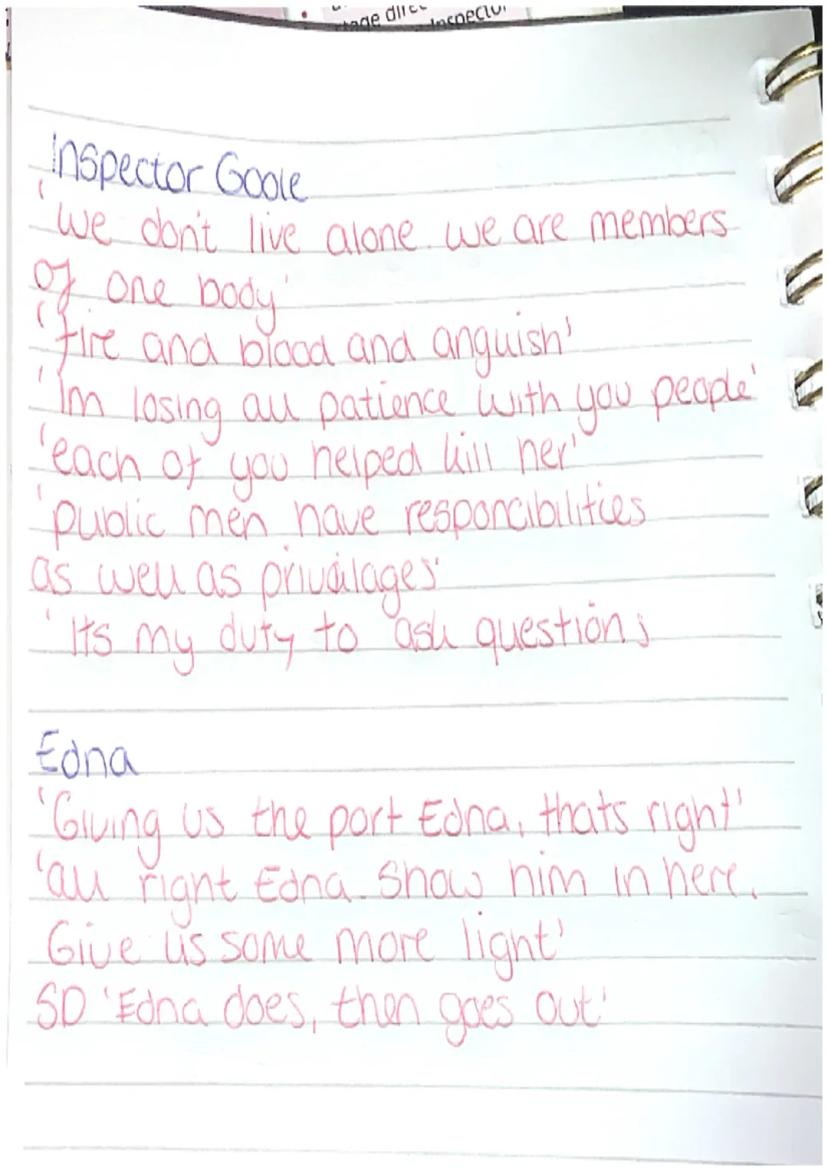 tage dire
Inspector
Inspector Goole
'we don't live alone. we are members
of one body'
'fire and blood and anguish'
'Im losing all patience with you people'
'each of you helped kill her'
'public men have responcibilities
as well as privalages'
'Its my duty to ask questions
Edna
'Giving us the port Edna, thats right'
'all right Edna. Show him in here.
Give us some more light'
SD 'Edna does, then goes out'